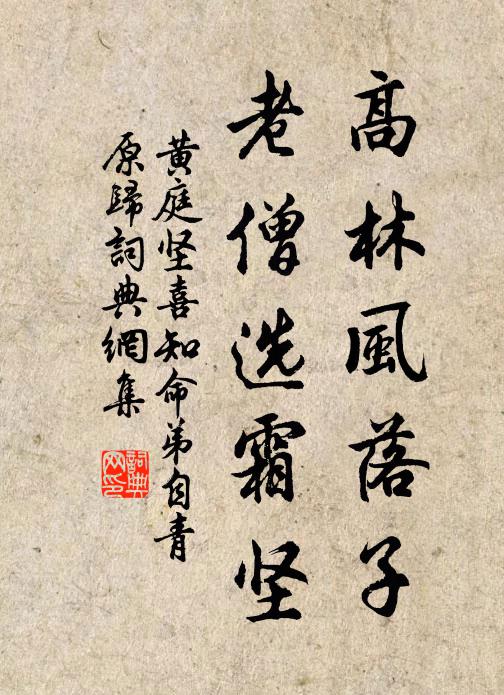 高林風落子
老僧选霜坚
黄庭坚喜知命弟自青
原歸詞典網集
詞典
网印